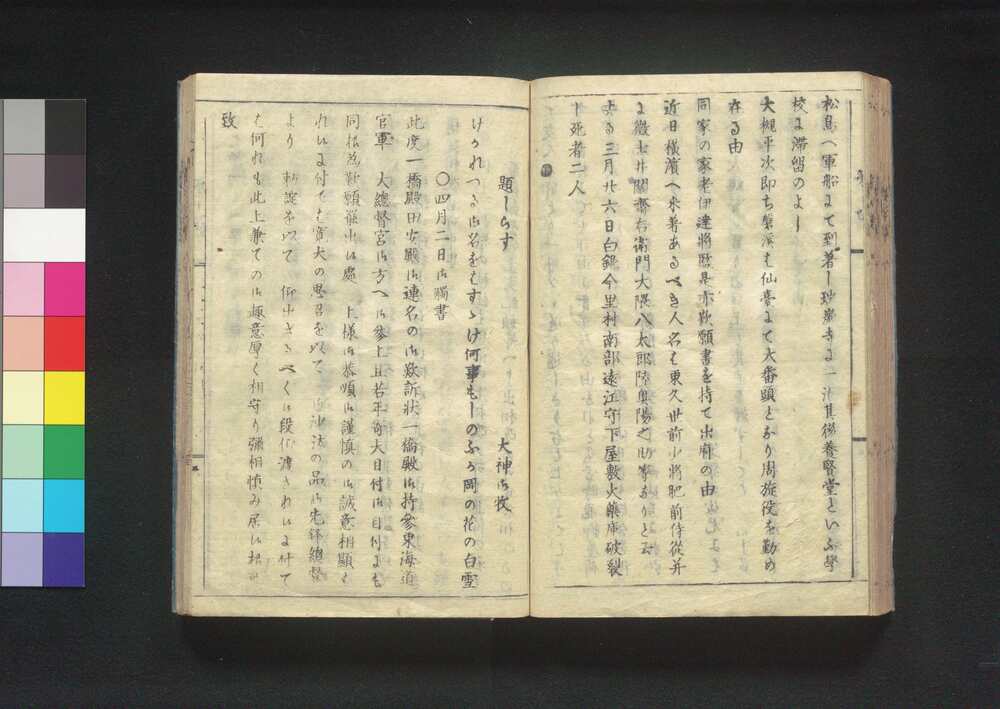 松島へ軍船にて到著し瑞巌寺に一泊其後養賢堂といふ學
校に滞留のよし
大槻平次即ち磐溪も仙臺にて大番頭となり周旋役を勤め
在る由
同家の家老伊達將監是亦歎願書を持て出府の由
近日横濱へ来著あるべき人名も東久世前少將肥前侍從并
に徴士井關齋右衛門大隈八太郎陸奥陽之助等なりと云
去る三月廿六日白銀今里村南部遠江守下屋敷火藥庫破裂
し死者二人
題しらす
大神御牧
けかれつる名をもすゝけ何事も の岡の花の白雪
〇四月二日御觸書
此度一橋殿田安殿御連名の御歎訴状一橋殿御持參東海道
官軍 大總督宮御方へ御參上且若年寄大目付御目付よりも
同樣為歎願罷出候處 上樣御恭順御謹慎の御誠意相顯も
れ候に付ても寛大の思召を以て 御沙法の品御先鋒總督
より 勅諚を以て 仰出さるべく御段 渡され候に付て
も何れも此上兼ての御趣意厚く相守り彌相慎み居候樣可
致